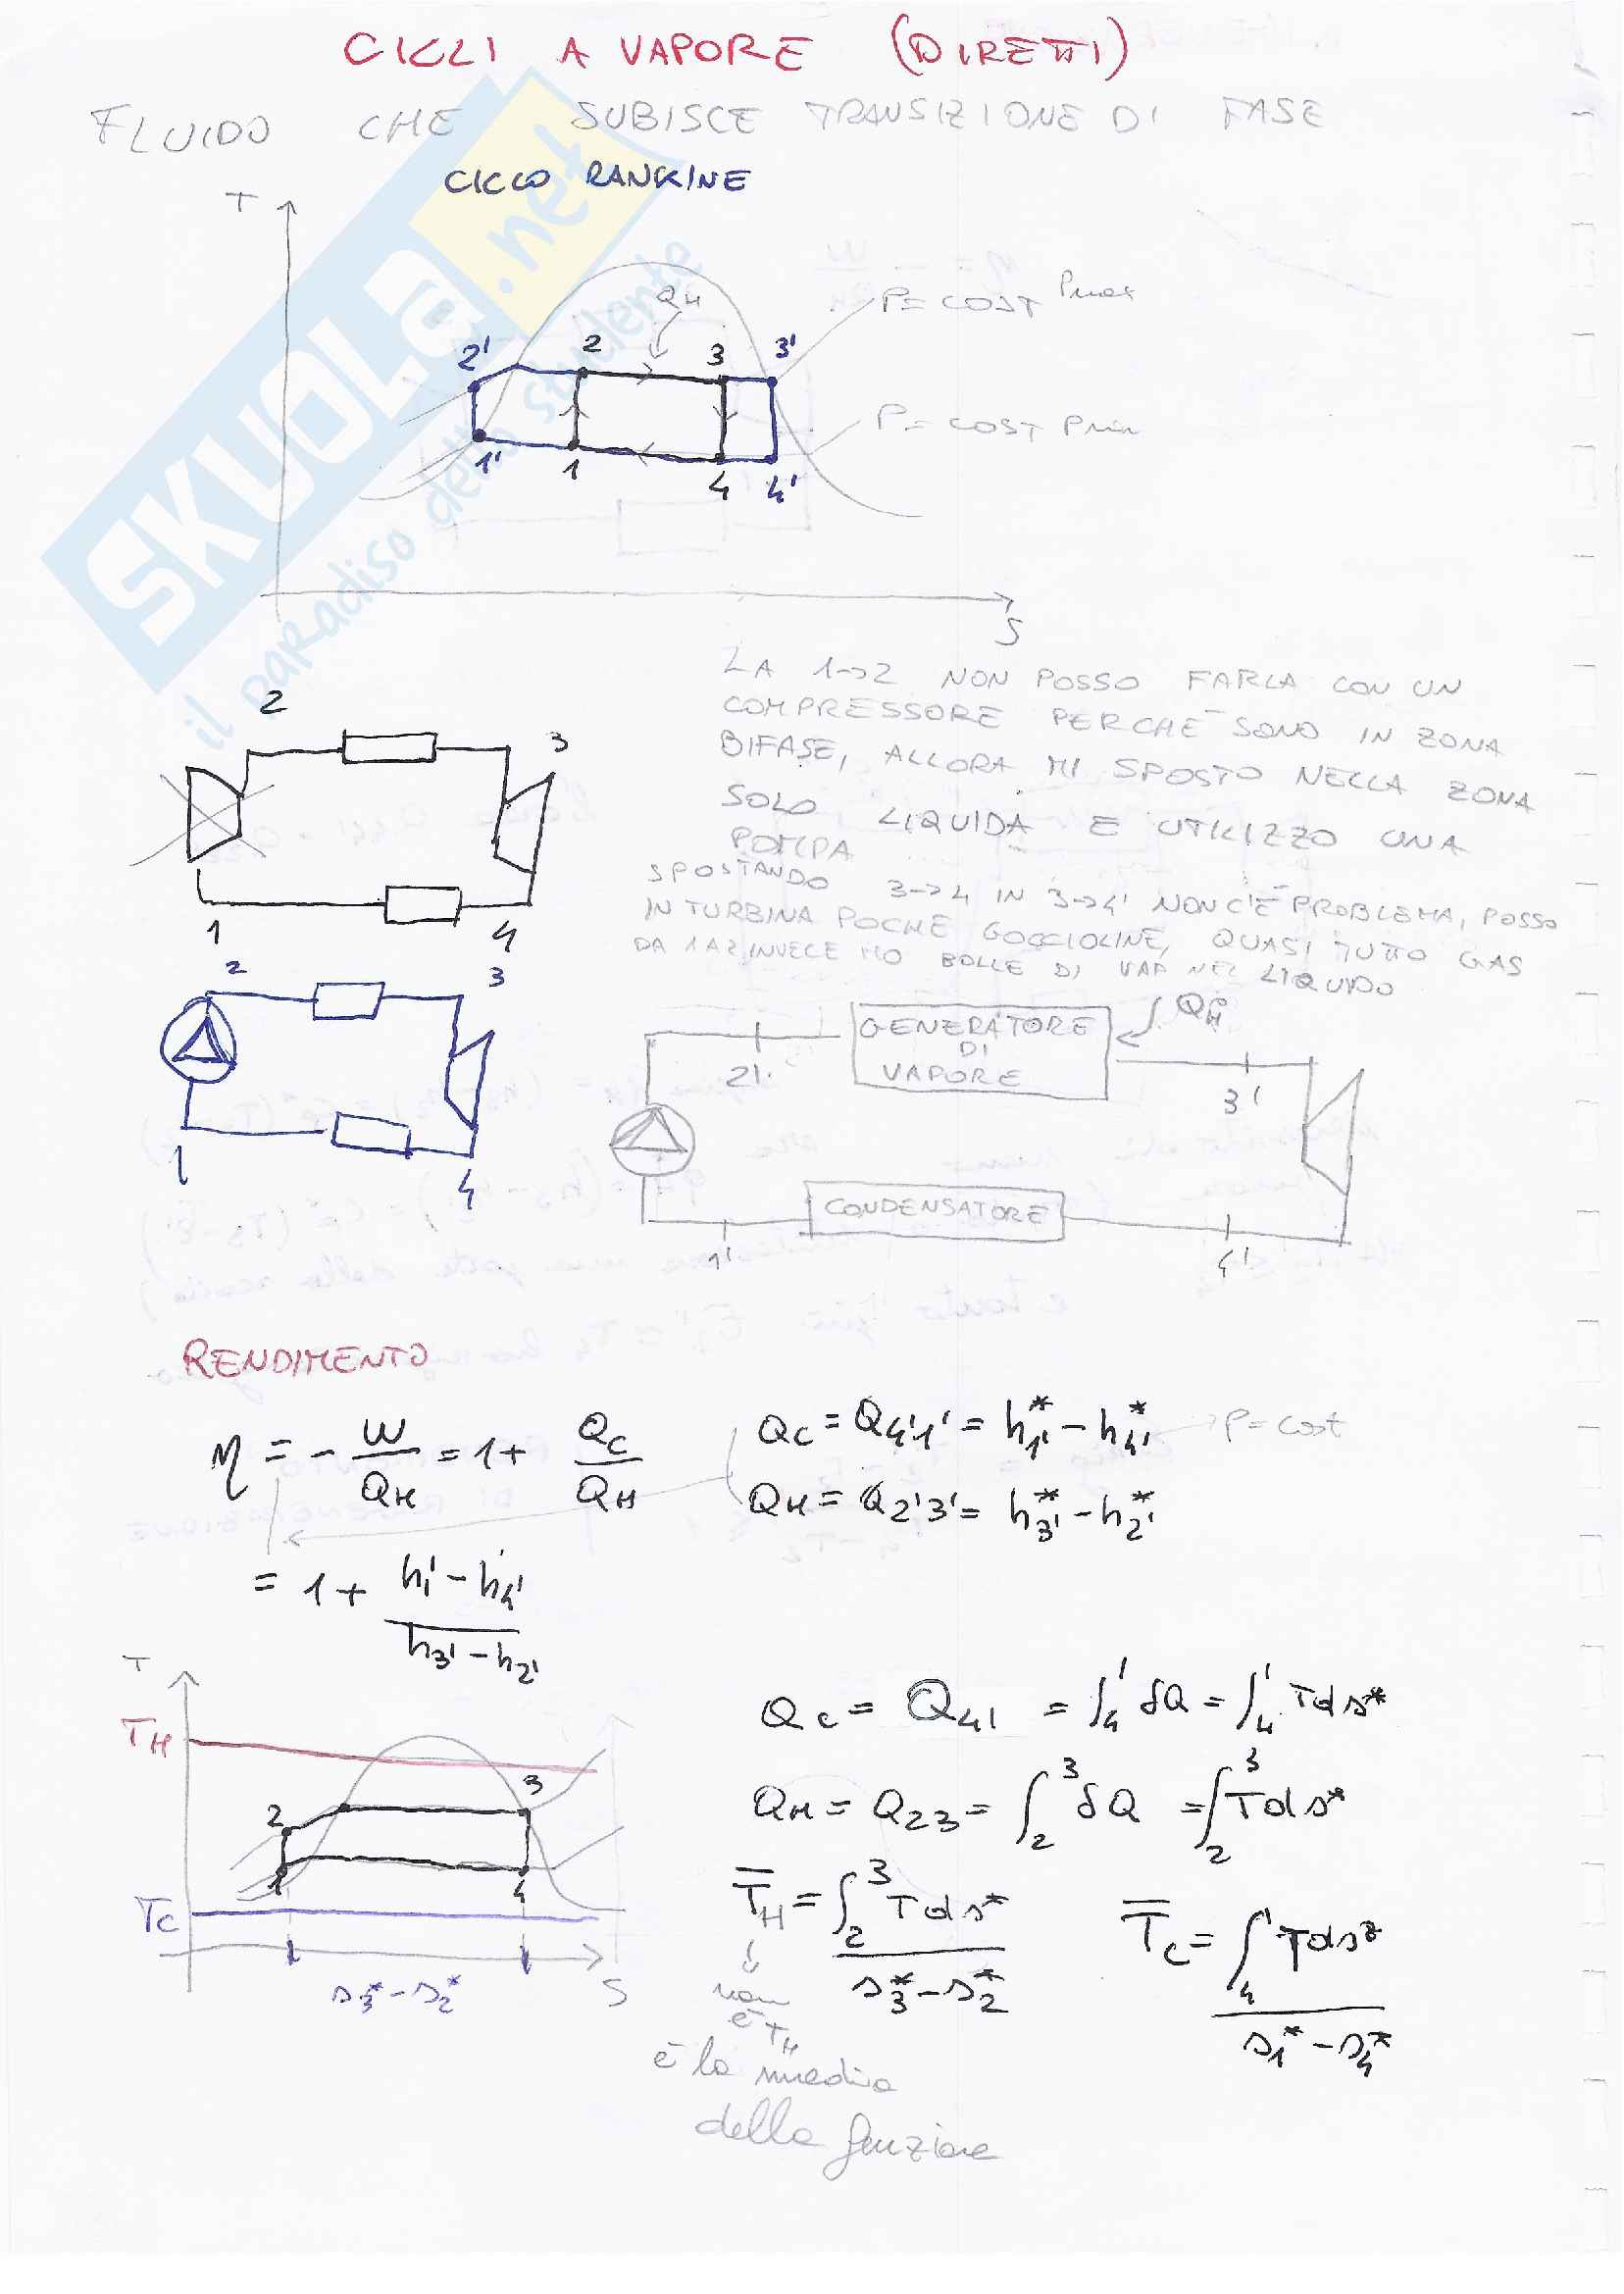 CICLI A VAPORE (DIRETTI)
FLUIDO CHE SUBISCE TRANSIZIONE DI FASE
CICLO RANKINE
T
QH
P=COST Pmax
2' 2 3 3'
P=COST Pmin
1' 1 4 4'
S
SKUOLA.net
il paradiso dello studente
LA 1→2 NON POSSO FARLA CON UN
COMPRESSORE PERCHE' SONO IN ZONA
BIFASE, ALLORA MI SPOSTO NELLA ZONA
SOLO LIQUIDA E UTILIZZO UNA
POMPA
SPOSTANDO 3→4 IN 3→4' NON C'E' PROBLEMA, POSSO
IN TURBINA POCHE GOCCIOLINE, QUASI TUTTO GAS
DA 1 A 2 INVECE HO BOLLE DI VAP NEL LIQUIDO
2 3
1 4
2 3
1 4
GENERATORE
DI
VAPORE
2' 3'
CONDENSATORE
1' 4'
RENDIMENTO
η = - W/QH = 1 + QC/QH
QC = Q4'1' = h*1' - h*4' → P=cost
QH = Q2'3' = h*3' - h*2'
= 1 + (h1' - h4')/(h3' - h2')
T
TH
2 3
1 4
TC
s3* - s2*
S
QC = Q41 = ∫₄¹ δQ = ∫₄¹ Tds*
QH = Q23 = ∫₂³ δQ = ∫₂³ Tds*
T̄H = ∫₂³ Tds* / (s3* - s2*)
T̄C = ∫₄¹ Tds* / (s1* - s4*)
non
è TH
è la media
della funzione